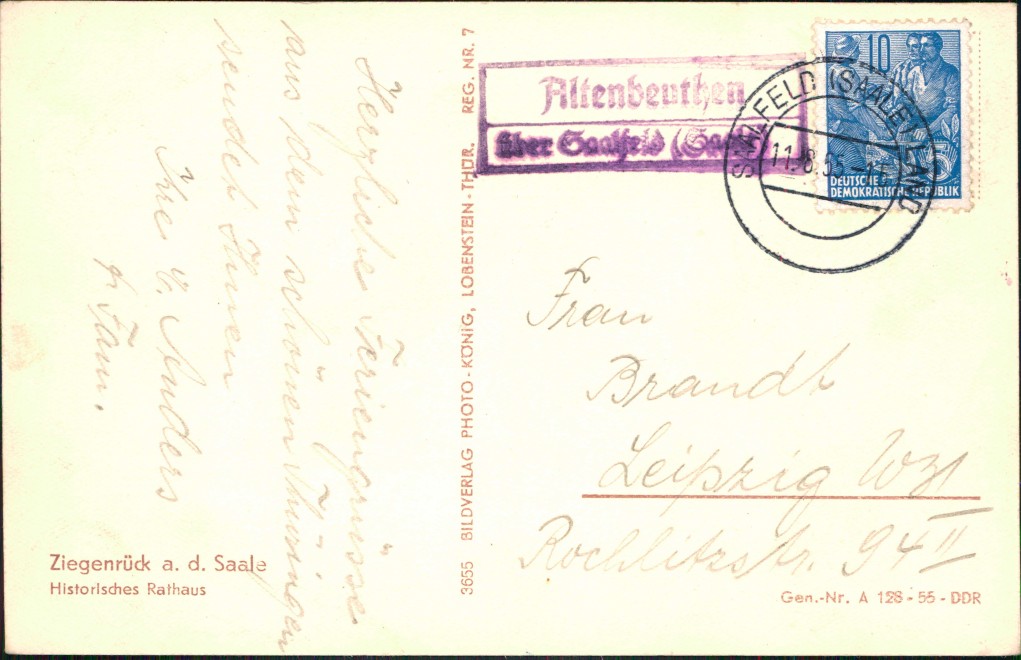 Herzliche Feriengrüsse
aus dem schönen Thüringen
sendet Ihnen
Ihre E. Anders
u. Fam.
Ziegenrück a. d. Saale
Historisches Rathaus
3655 BILDVERLAG PHOTO-KÖNIG, LOBENSTEIN-THÜR. REG. NR. 7
Altenbeuthen
über Saalfeld (Saale)
SAALFELD (SAALE) LAND
11.8.55
10
DEUTSCHE
DEMOKRATISCHE REPUBLIK
Frau
Brandt
Leipzig W31
Rochlitzstr. 94 II
Gen.-Nr. A 128-55-DDR